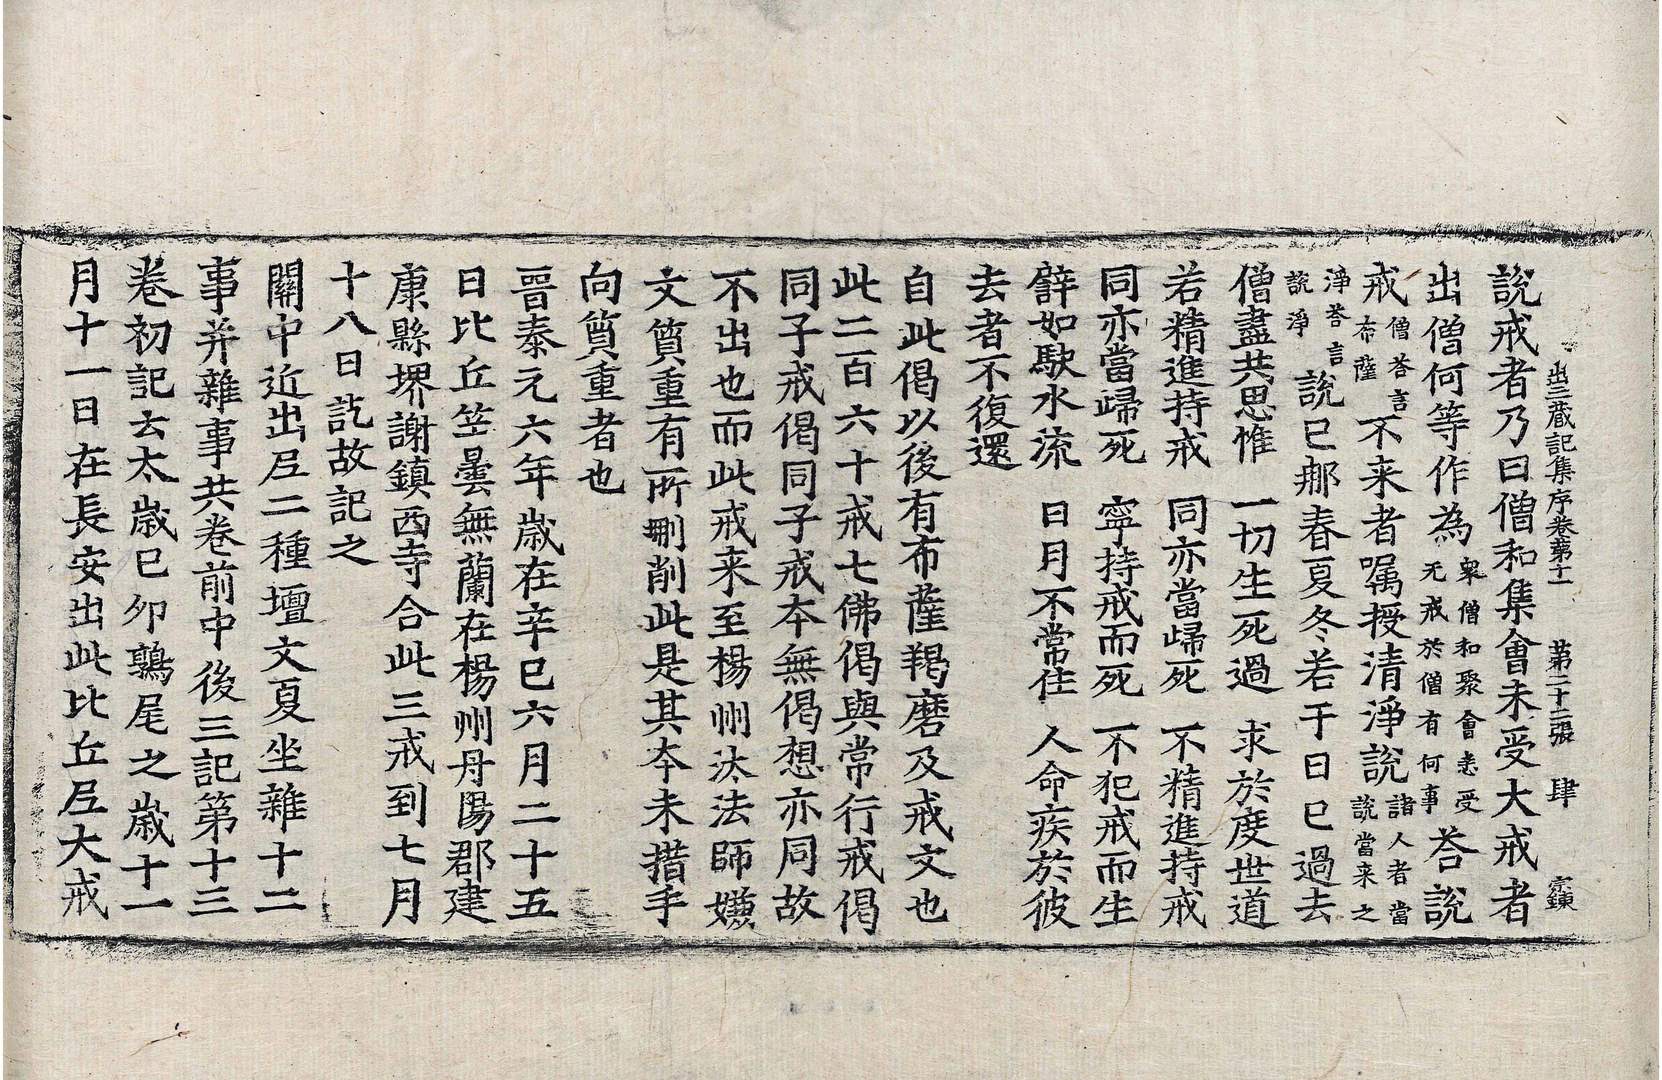 出三藏記集序卷第十一 第二十二張 肆
說戒者乃曰僧和集會未受大戒者
出僧何等作為衆僧和聚會悉受无戒於僧有何事荅說
戒僧荅言布薩不来者嘱授清淨說諸人者當說當来之
淨荅言說淨說已𨙻春夏冬若干日已過去
僧盡共思惟 一切生死過 求於度世道
若精進持戒 同亦當歸死 不精進持戒
同亦當歸死 寧持戒而死 不犯戒而生
譬如駃水流 日月不常住 人命疾於彼
去者不復還
自此偈以後有布薩羯磨及戒文也
此二百六十戒七佛偈與常行戒偈
同子戒偈同子戒夲無偈想亦同故
不出也而此戒来至楊州汰法師嫌
文質重有所刪削此是其夲未措手
向質重者也
晉泰元六年歲在辛巳六月二十五
日比丘竺曇無蘭在楊州丹陽郡建
康縣堺謝鎮西寺合此三戒到七月
十八日訖故記之
關中近出𡰱二種壇文夏坐雜十二
事并雜事共卷前中後三記第十三
卷初記云太歲己卯鶉尾之歲十一
月十一日在長安出此比丘𡰱大戒